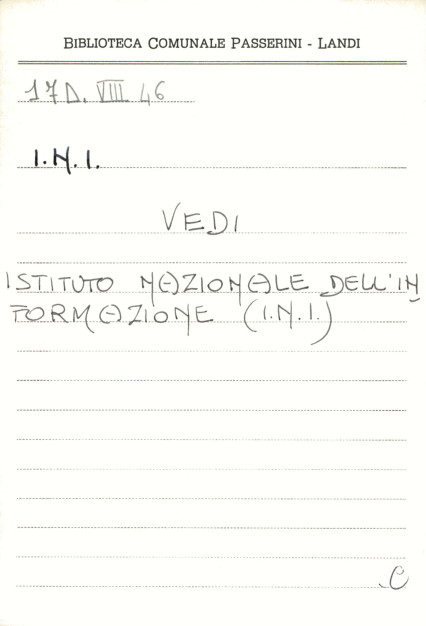 BIBLIOTECA COMUNALE PASSERINI - LANDI
17 D. VIII 46
I.N.I.
VEDI
ISTITUTO NAZIONALE DELL'IN
FORMAZIONE (I.N.I.)
C